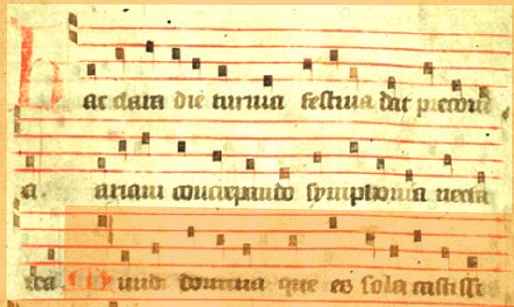 Hac clara die turma festiua dat preconi
a. ariam concrepando symphonia necta
rea. Mundi domina que es sola castissi